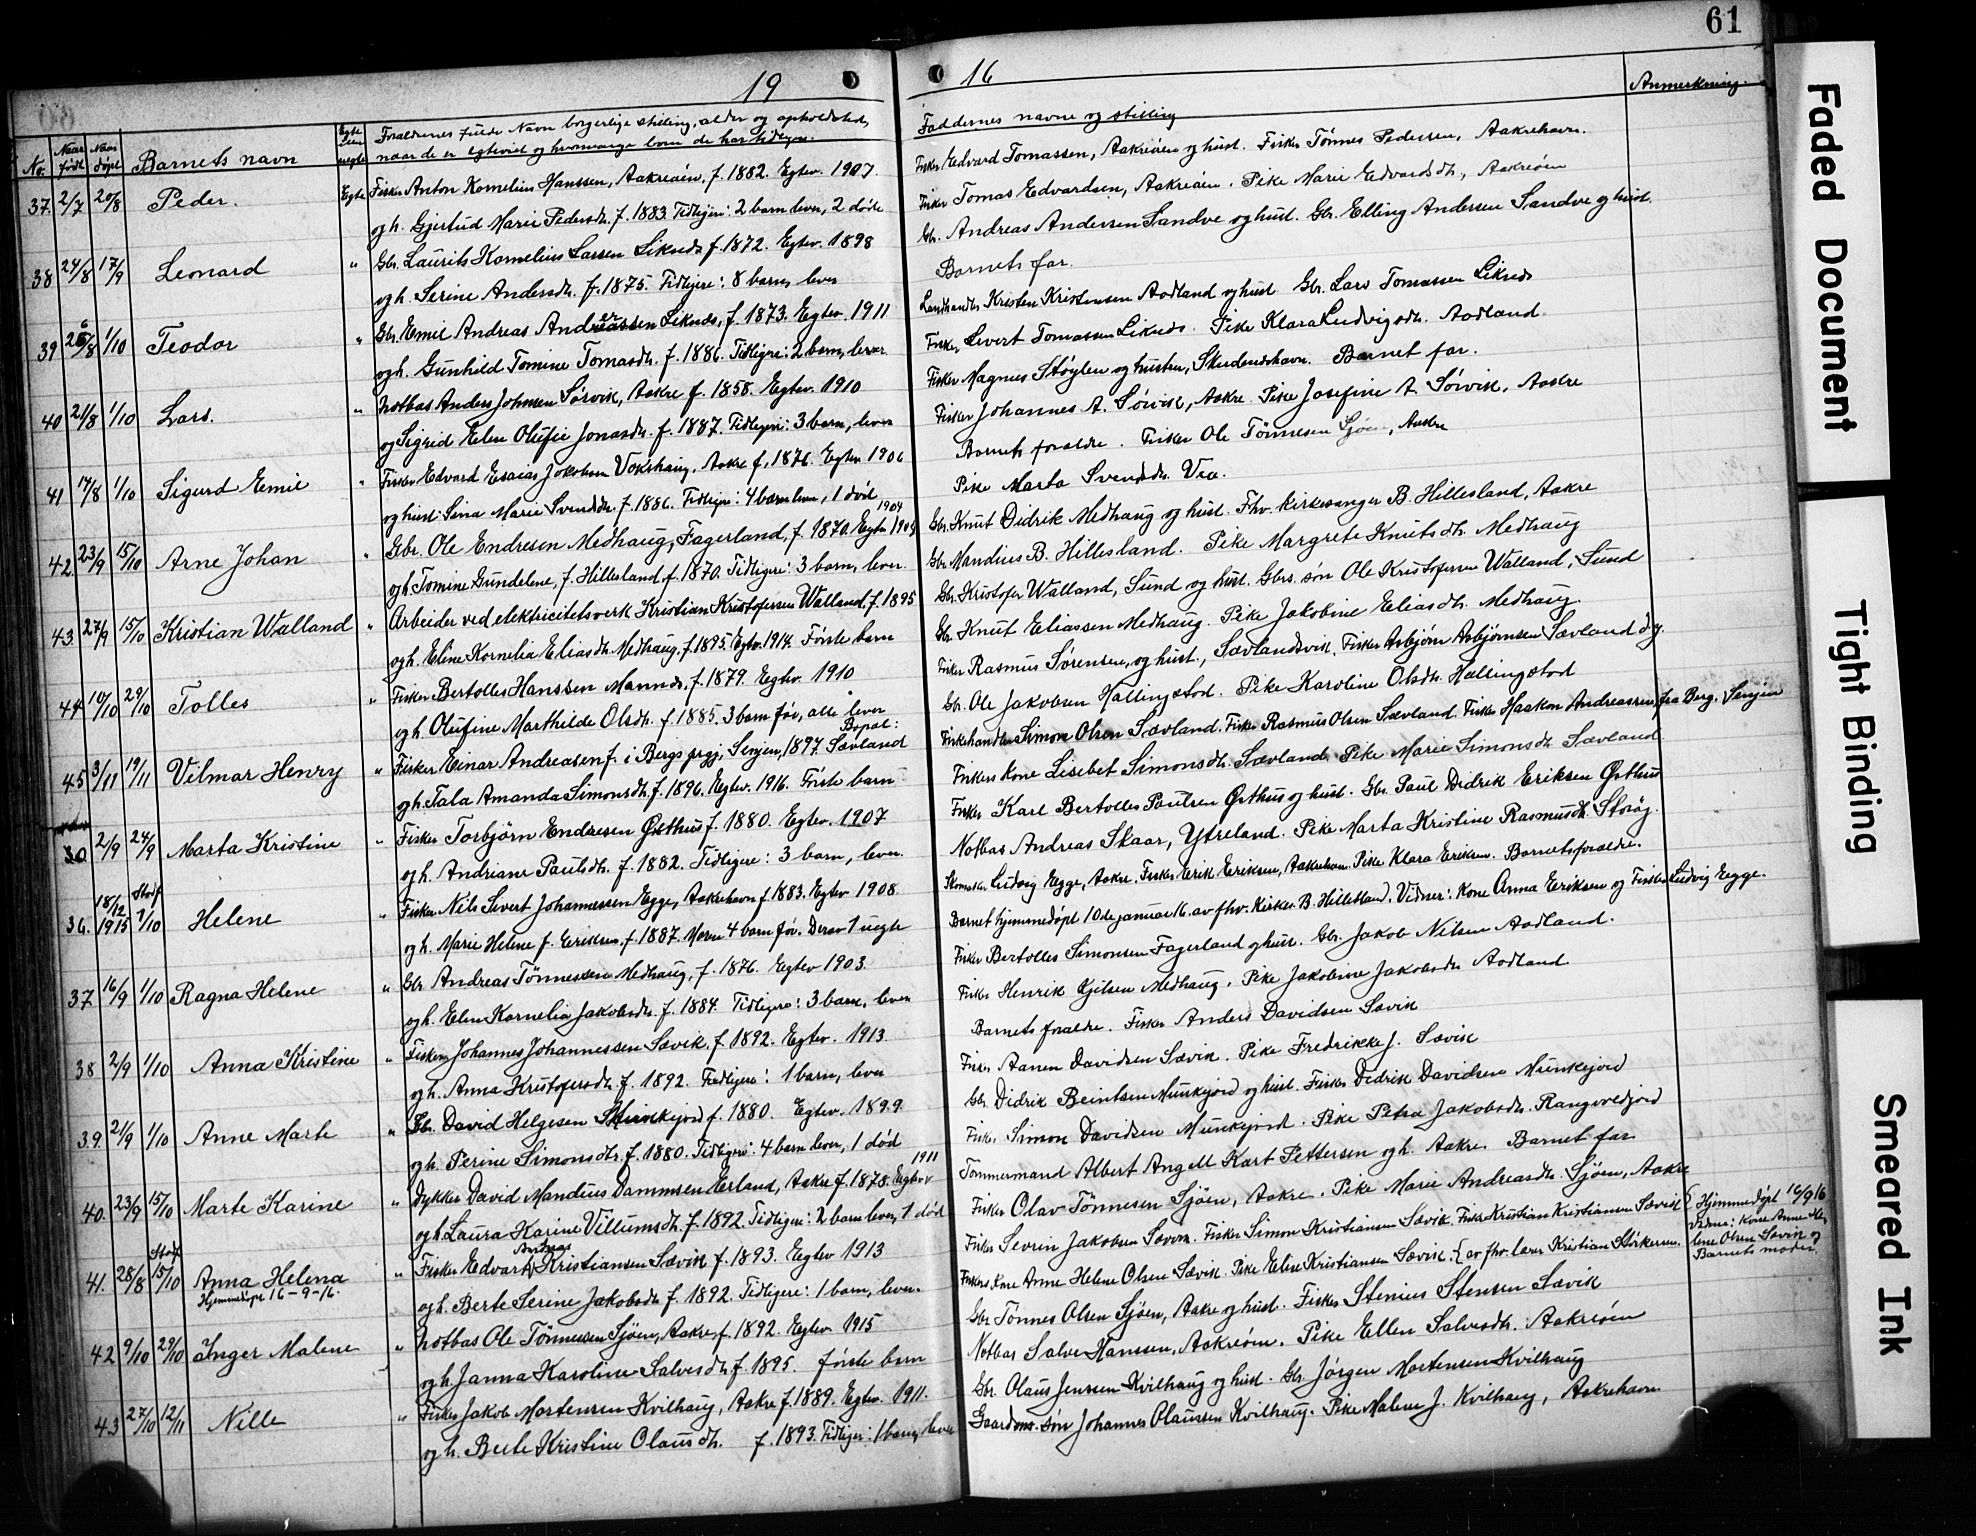 61
19
16
No.
Naar født
Naar døpt
Barnets navn
Egte eller uegte
Forældrenes fulde Navn borgerlige stilling, alder og opholdssted,
naar de er egteviet og hvormange barn de har tidligere.
Faddernes navne og stilling
Anmerkning.
37. 2/7 20/8 Peder. Egte Fisker Anton Kornelius Hanssen, Aakreøen, f. 1882. Egtev. 1907.
Fisker Edvard Tomassen, Aakreøen og hust. Fisker Tønnes Pedersen, Aakrehavn.
og h. Gjertud Marie Pedersdt. f. 1883. Tidligere: 2 barn lever, 2 døde
Fisker Tomas Edvardsen, Aakreøen. Pike Marie Edvardsdt., Aakreøen
38 24/8 17/9 Leonard " Gbr. Laurits Kornelius Larsen Liknes f. 1872. Egtev. 1898
Gbr. Andreas Andersen Sandve og hust. Gbr. Elling Andersen Sandve og hust.
og h. Serine Andersdt. f. 1875. Tidligere: 8 barn, lever
Barnets far.
39 26/8 1/10 Teodor " Gbr. Emil Andreas Andreassen Liknes, f. 1873. Egtev. 1911
Landhandler Kristen Kristensen Aodland og hust Gbr. Lars Tomassen Liknes
og h. Gunhild Tomine Tomasdt. f. 1886. Tidligere: 2 barn, lever
Fisker Sivert Tomassen Liknes. Pike Klara Ludvigsdt. Aodland.
40 21/8 1/10 Lars. " Notbas Anders Johnsen Sørvik, Aakre f. 1858. Egtev. 1910
Fisker Magnus Støylen og hustru, Skudeneshavn. Barnet far.
og Sigrid Elen Olufie Jonasdt. f. 1887. Tidligere: 3 barn, lever
Fisker Johannes A. Sørvik, Aakre. Pike Josefine A. Sørvik, Aakre
41 17/8 1/10 Sigurd Emil " Fisker Edvard Esaias Jakobsen Vokshaug, Aakre f. 1876. Egtev. 1906
Barnets foraldre. Fisker Ole Tønnesen Sjøen, Aakre
og hust. Sina Marie Svendsdt. f. 1886. Tidligere: 4 barn lever, 1 død
Pike Marta Svendsdt. Vea.
1904
42. 23/9 15/10 Arne Johan " Gbr. Ole Endresen Medhaug, Fagerland, f. 1870. Egtev
Gbr. Knut Didrik Medhaug og hust. Fhv. kirkesanger B. Hillesland, Aakre
og h. Tomine Gundelene, f. Hillesland f. 1870. Tidligere: 3 barn, lever
Gbr. Mandius B. Hillesland. Pike Margrete Knutsdt. Medhaug
43. 27/9 15/10 Kristian Walland " Arbeider ved elektricitetsverk Kristian Kristofersen Walland, f. 1895
Gbr. Kristofer Walland, Sund og hust. Gbrs. søn Ole Kristofersen Walland, Sund
og h. Eline Kornelia Eliasdt. Medhaug, f. 1895. Egtev. 1914. Første barn
Gbr. Knut Eliassen Medhaug. Pike Jakobine Eliasdt. Medhaug.
44 10/10 29/10 Tolles " Fisker Bertolles Hanssen Mannes, f. 1879. Egtev. 1910
Fisker Rasmus Sørensen, og hust., Sævlandsvik. Fisker Asbjørn Asbjørnsen Sævland
og h. Olufine Marthilde Olsdt. f. 1885. 3 barn før, alle lever
Gbr. Ole Jakobsen Hallingstad. Pike Karoline Olsdt. Hallingstad
Bopæl:
45 3/11 19/11 Vilmar Henry " Fisker Einar Andreasen f. i Bergs prgj, Senjen, 1897. Sævland
Fiskehandler Simon Olsen Sævland. Fisker Rasmus Olsen Sævland. Fisker Haakon Andreassen, fra Berg, Senjen
og h. Tala Amanda Simonsdt. f. 1896. Egtev. 1916. Første barn
Fiskers kone Lisebet Simonsdt. Sævland. Pike Marie Simonsdt. Sævland
30 2/9 24/9 Marta Kristine " Fisker Torbjørn Endresen Østhus f. 1880. Egtev. 1907
Fisker Karl Bertolles Paulsen Østhus og hust. Gbr. Paul Didrik Eriksen Østhus
og h. Andriane Paulsdt. f. 1882. Tidligere: 3 barn, lever.
Notbas Andreas Skaar, Ytreland. Pike Marta Kristine Rasmusdt. Storøy.
36. 18/12 1915 Stadf 1/10 Helene " Fisker Nils Sivert Johannessen Egge, Aakrehavn f. 1883. Egtev. 1908
Ludvig Egge, Aakre. Fisker Erik Eriksen, Aakrehavn. Pike Klara Eriksen. Barnets foraldre.
og h. Marie Helene f. Eriksen, f. 1887. Moren 4 barn før. Derav 1 uegte
Barnet hjemmedøpt 10de januar 16. av fhv. Kirkes. B. Hillesland. Vidner: Kone Anna Eriksen og Fisker Ludvig Egge.
37 16/9 1/10 Ragna Helene " Gbr Andreas Tønnessen Medhaug, f. 1876. Egtev 1903.
Fisker Bertolles Simonsen Fagerland og hust. Gbr. Jakob Nilsen Aodland.
og h. Elen Kornelia Jakobsdt. f. 1884. Tidligere: 3 barn, lever
Fisker Henrik Kjelsen Medhaug. Pike Jakobine Jakobsdt. Aodland
38 2/9 1/10 Anna Kristine " Fisker Johannes Johannessen Sævik. f. 1892. Egtev. 1913.
Barnets foraldre. Fisker Anders Davidsen Sævik
og h. Anna Kristofersdt. f. 1892. Tidligere: 1 barn, lever
Fisker Aanen Davidsen Sævik. Pike Fredrikke J. Sævik
39. 21/9 1/10 Anne Marte " Gbr. David Helgesen Munkejord f. 1880. Egtev. 1899.
Gbr. Didrik Beintsen Munkejord og hust. Fisker Didrik Davidsen Munkejord
og h. Perine Simonsdt. f. 1880. Tidligere: 4 barn lever, 1 død
Fisker Simon Davidsen Munkejord. Pike Petra Jakobsdt. Rangveldjord
1911
40. 23/9 15/10 Marte Karine " Dykker David Mandius Dammsen Erland, Aakre f. 1878. Egtev
Tømmermand Albert Angell Kart Pettersen og h. Aakre. Barnet far
og h. Laura Karine Villumsdt. f. 1892. Tidligere: 2 barn lever, 1 død
Fisker Olav Tønnesen Sjøen, Aakre. Pike Marie Andreasdt. Sjøen, Aakre
41. 28/8 Stadf 15/10 Anna Helena " Fisker Edvart Andreas Kristiansen Sævik f. 1893. Egtev 1913
Hjemmedøpt 16-9-16.
Fisker Sevrin Jakobsen Sævik. Fisker Simon Kristiansen Sævik. Fisker Kristian Kristiansen Sævik
{Hjemmedøpt 16/9 16
Vidner: Kone Anne Helene Olsen Sævik og
Barnets moder.
og h. Berte Serine Jakobsdt f. 1892. Tidligere: 1 barn, lever.
Fiskers kone Anne Helene Olsen Sævik. Pike Eline Kristiansen Sævik. {av fhv. lærer Kristian
42 9/10 29/10 Inger Malene " Notbas Ole Tønnessen Sjøen, Aakre, f. 1892. Egtev 1915
Gbr Tønnes Olsen Sjøen, Aakre og hust. Fisker Stenius Stensen Sævik
og h. Janna Karoline Salvesdt f. 1895. første barn
Notbas Salve Hanssen, Aakreøen. Pike Ellen Salvesdt. Aakreøen
43 27/10 12/11 Nille " Fisker Jakob Mortensen Kvilhaug, Aakre f. 1889. Egtev. 1911.
Gbr. Olaus Jenssen Kvilhaug og hust. Gbr. Jørgen Mortensen Kvilhaug
og h. Berte Kristine Olausdt. f. 1893. Tidligere: 1 barn, lever
Gaardms. søn Johannes Olaussen Kvilhaug. Pike Malene J. Kvilhaug, Aakrehavn
Faded Document
Tight Binding
Smeared Ink